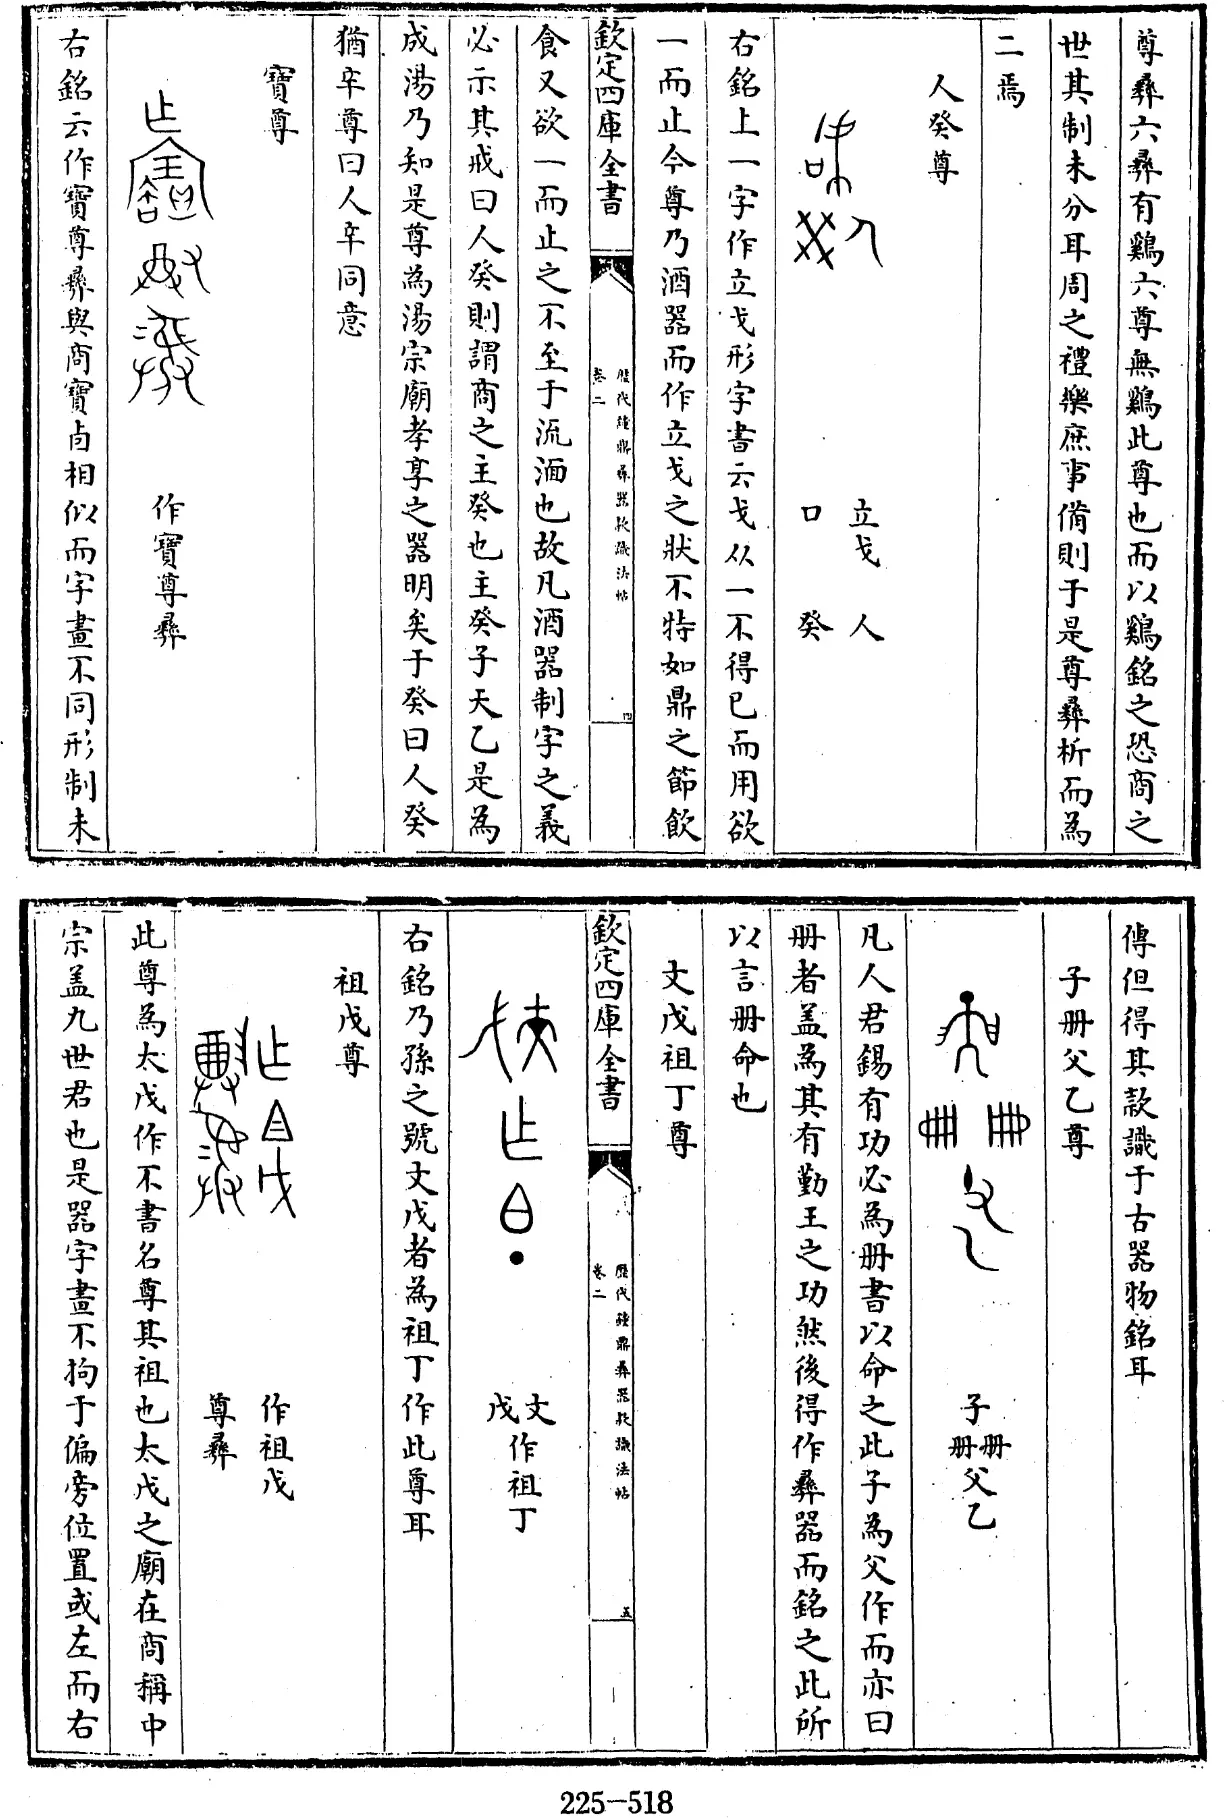 尊彝六彝有鷄六尊無鷄此尊也而以鷄銘之恐商之
世其制未分耳周之禮樂庶事備則于是尊彝析而為
二焉
人癸尊
立戈 人
口 癸
右銘上一字作立戈形字書云戈从一不得已而用欲
一而止今尊乃酒器而作立戈之狀不特如鼎之節飲
欽定四庫全書
歷代鐘鼎彝器款識法帖
卷二
四
食又欲一而止之不至于流湎也故凡酒器制字之義
必示其戒曰人癸則謂商之主癸也主癸子天乙是為
成湯乃知是尊為湯宗廟孝享之器明矣于癸曰人癸
猶辛尊曰人辛同意
寶尊
作寶尊彝
右銘云作寶尊彝與商寶卣相似而字畫不同形制未
傳但得其款識于古器物銘耳
子冊父乙尊
子
冊冊
父乙
凡人君錫有功必為冊書以命之此子為父作而亦曰
冊者盖為其有勤王之功然後得作彝器而銘之此所
以言冊命也
丈戊祖丁尊
欽定四庫全書
歷代鐘鼎彝器款識法帖
卷二
五
丈戊作祖丁
右銘乃孫之號丈戊者為祖丁作此尊耳
祖戊尊
作祖戊
尊彝
此尊為太戊作不書名尊其祖也太戊之廟在商稱中
宗盖九世君也是器字畫不拘于偏旁位置或左而右
225-518